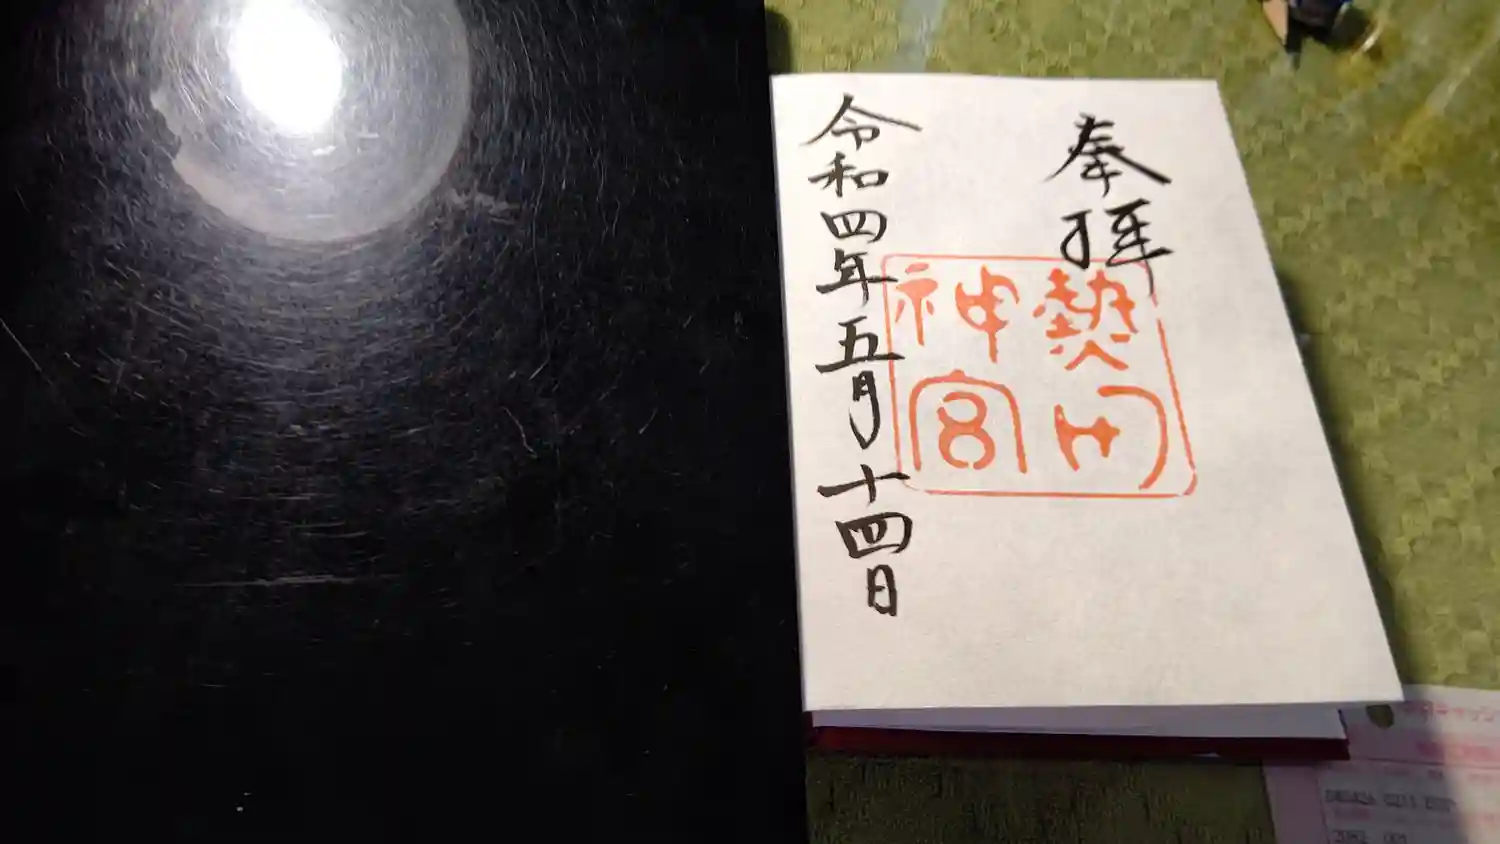 奉拝
熱田
神宮
令和四年五月十四日